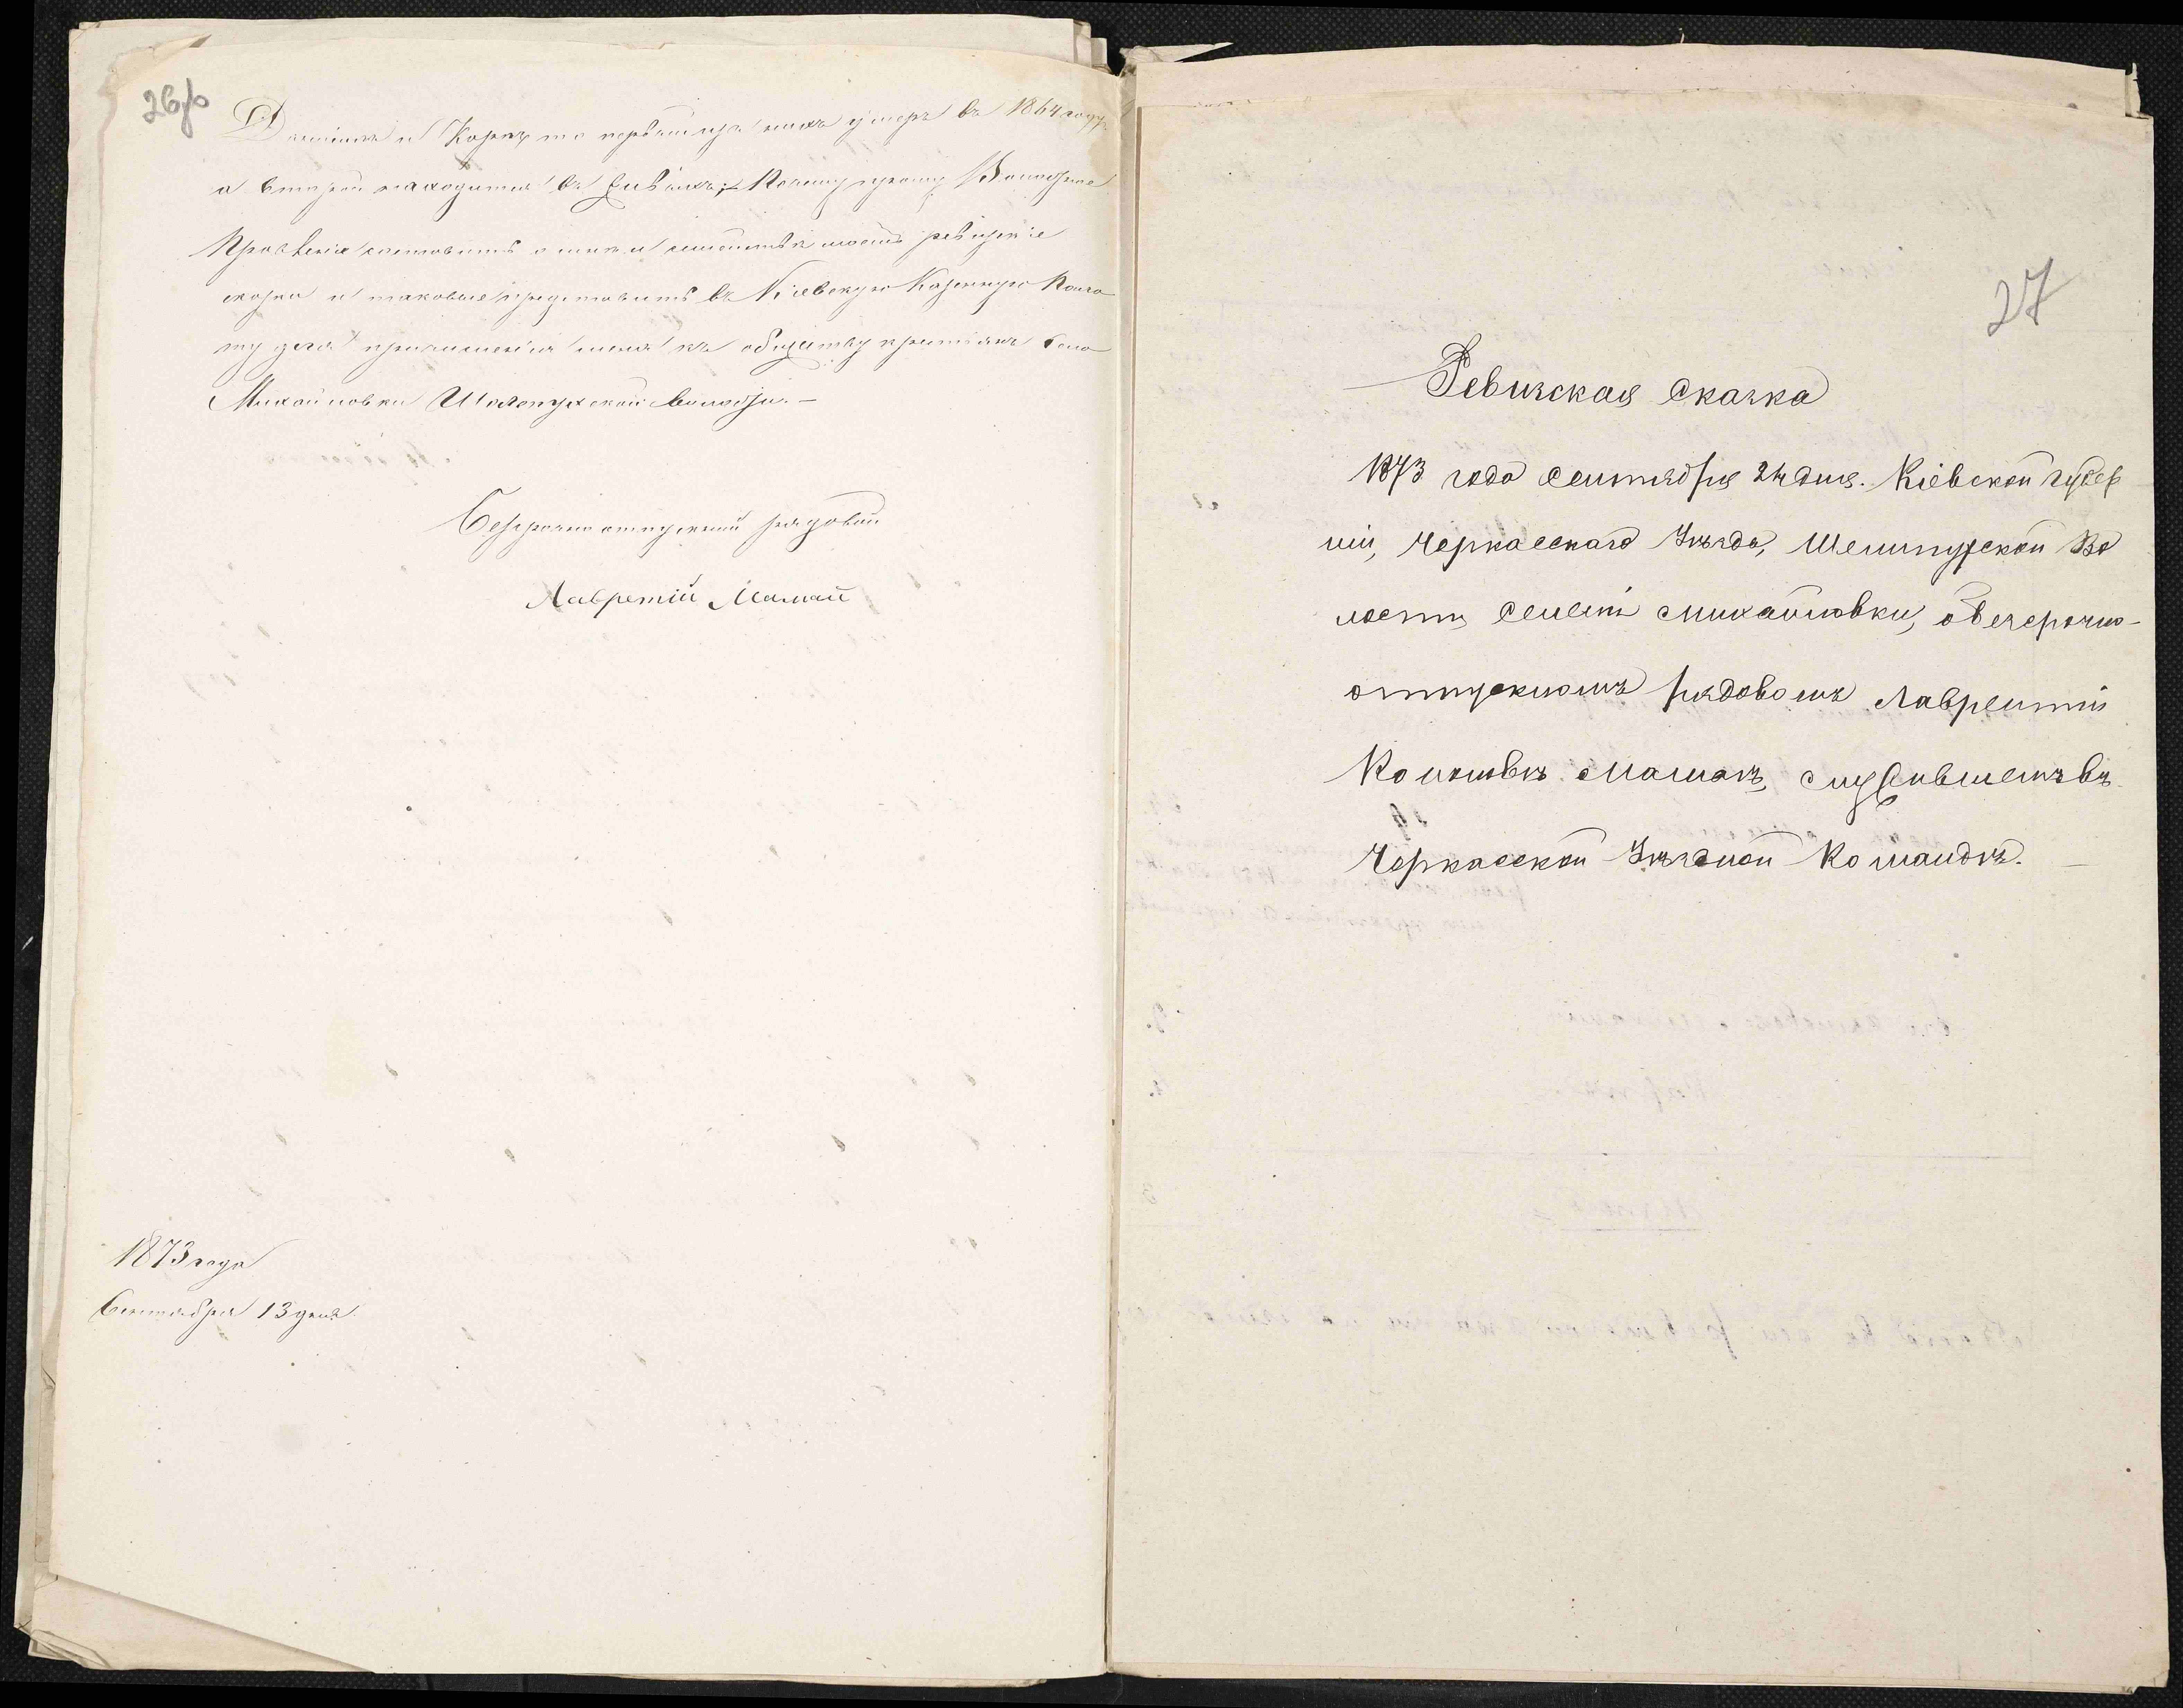 26об
и Корней то первый изъ нихъ умеръ въ 1864 году,
а второй находится въ живыхъ; Почему прошу Волостное
Правленіе составить о мнѣ и семействѣ моемъ ревизскіе
сказки и таковые представить въ Кіевскую Казенную Пала
ту для причисленія меня къ обществу крестьянъ села
Михайловки Шелепухской волости. —
Безсрочно отпускный рядовый
Лавретій Мамай
1873 года
Сентября 13 дня.
27
Ревизская Сказка
1873 года Сентября 24 дня. Кіевской Губер
ніи, Черкасскаго Уѣзда, Шелепухской Во
лости, Селенія Михайловки, о безсрочно-
отпускномъ рядовомъ Лаврентіи
Мамаѣ, служившемъ въ
Черкасской Уѣздной Командѣ. —